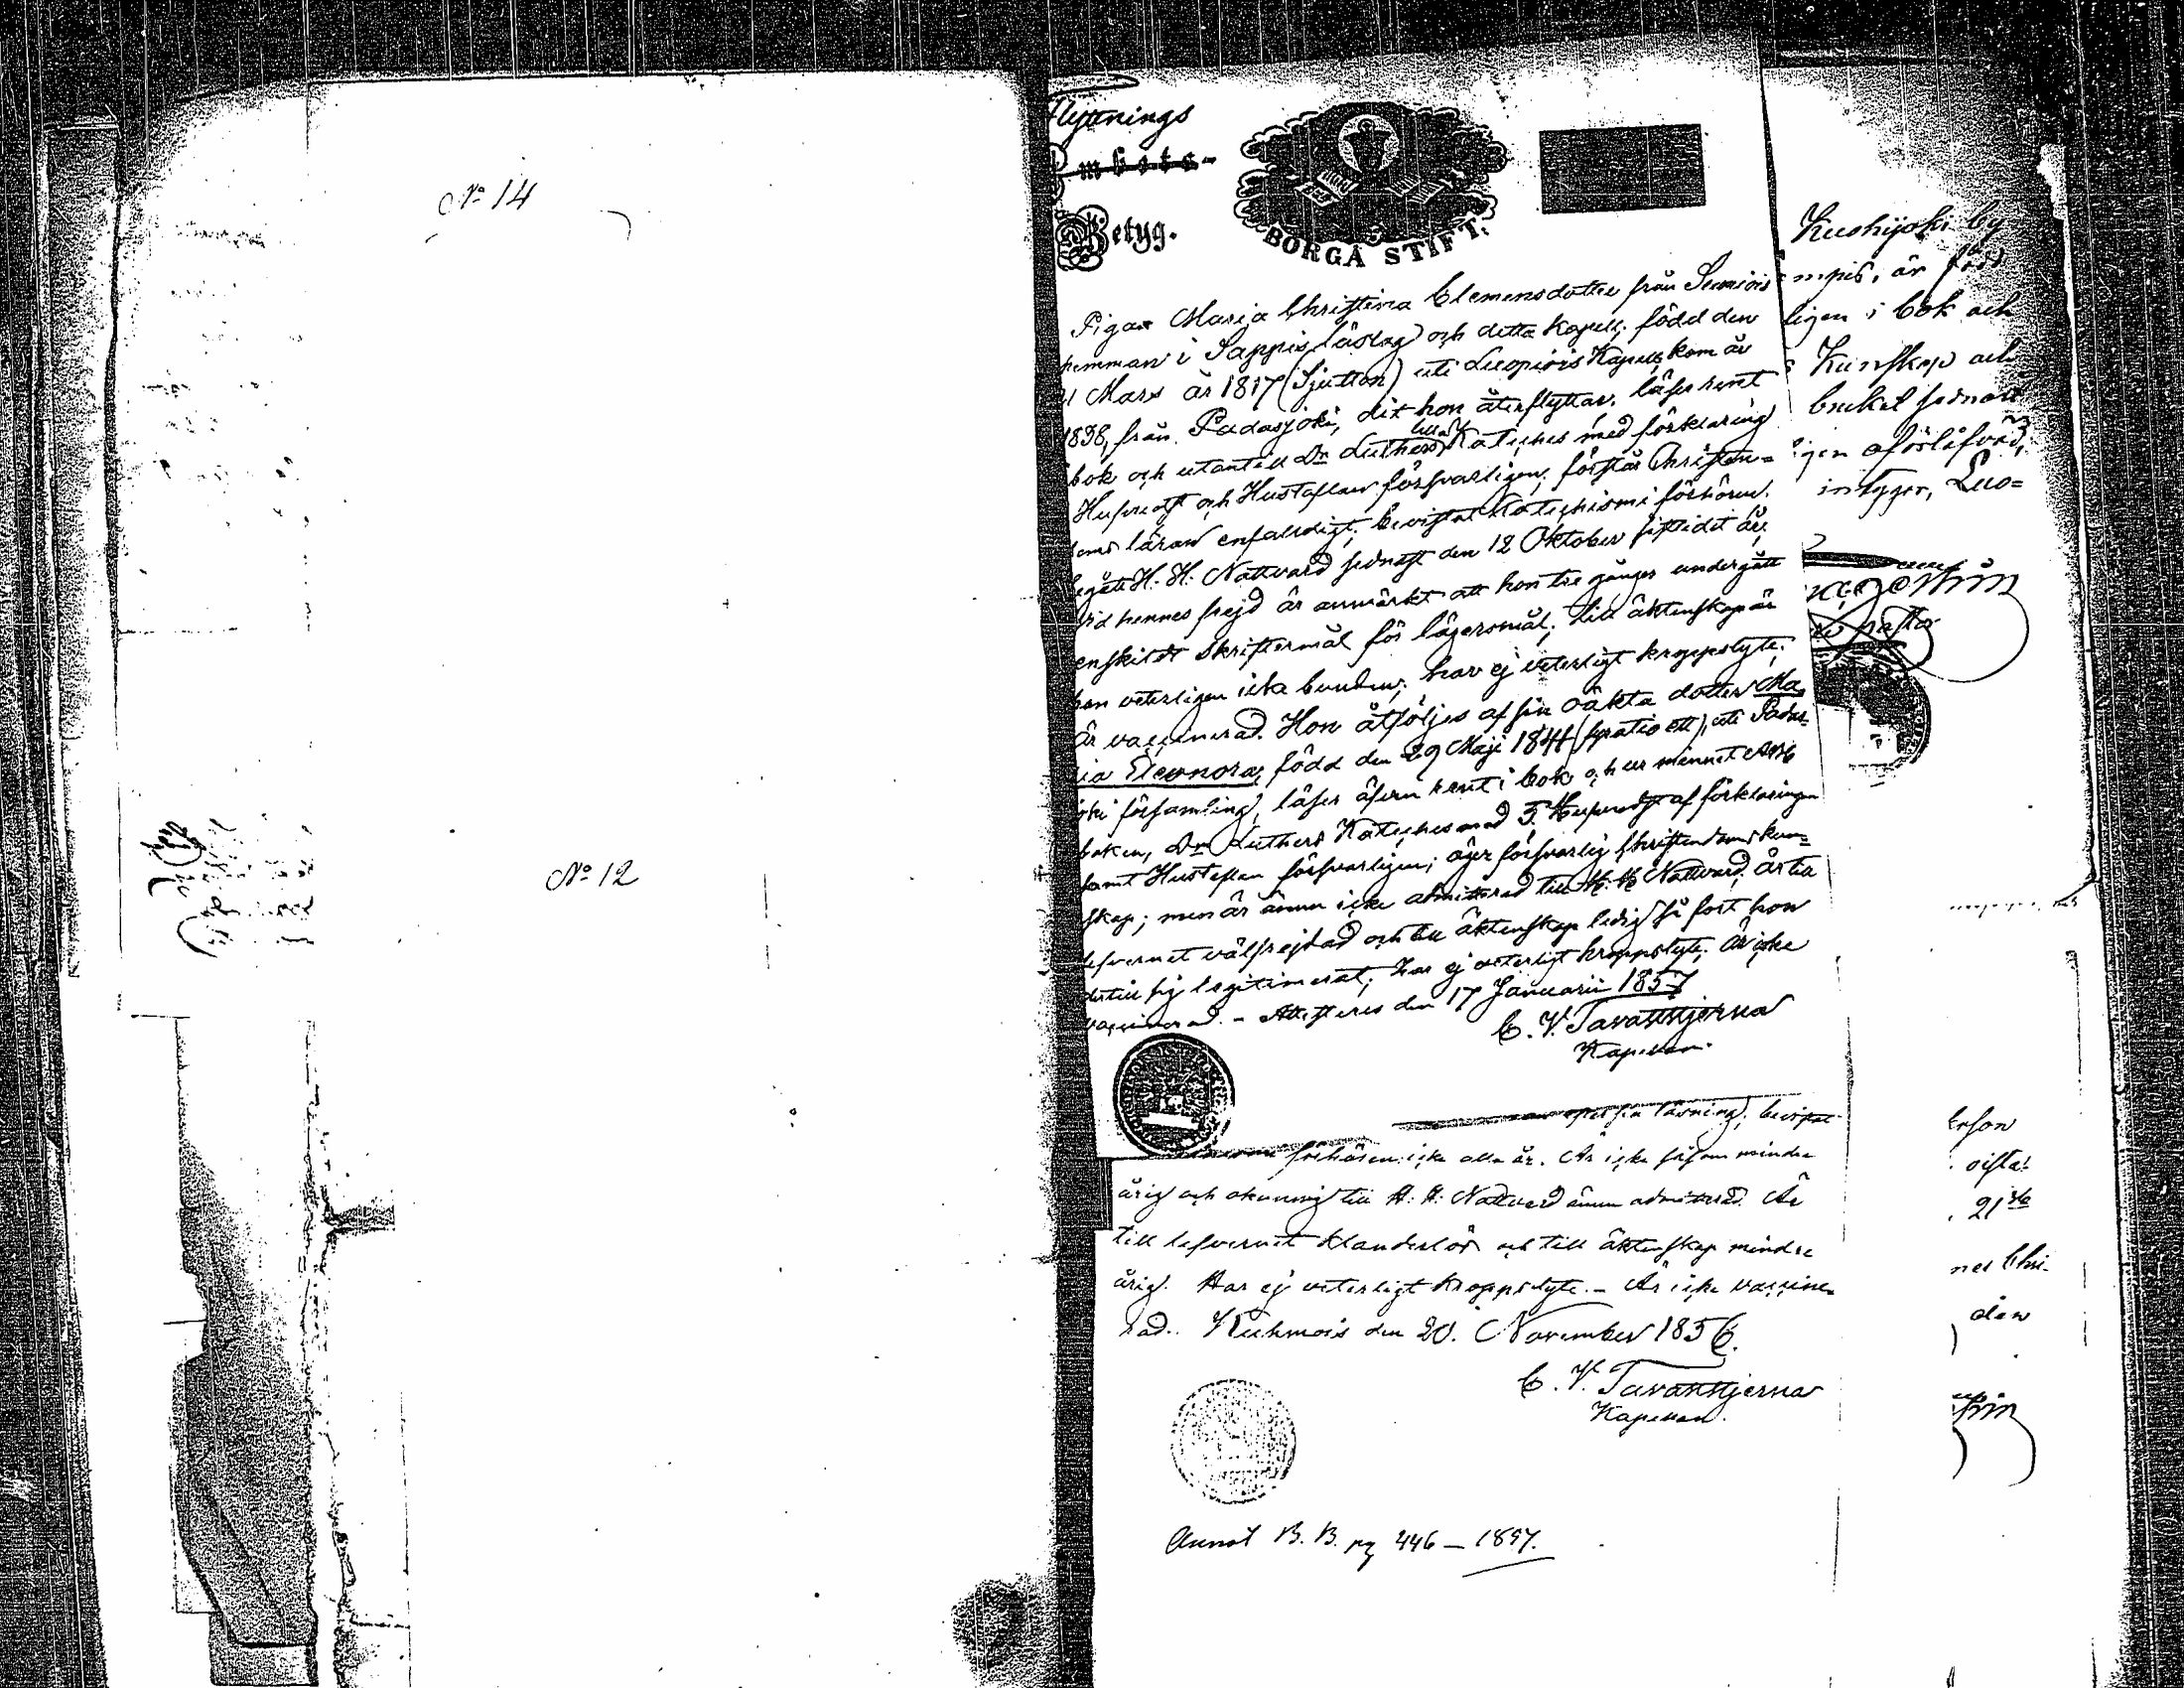 № 14
№ 12
Flyttnings
Ambets-
Betyg.
BORGÅ STIFT.
Pigan Maria Christina Clemensdotter från
hemman i Sappis läslag och detta Kapell, född den
21 Mars år 1817 (Sjutton) uti Luopiois Kapell, kom år
1838, från Padasjoki, dit hon återflyttar, läser rent
i bok och utantill Dr Luthers lilla Kateches med förklaring
Huspredt och Hustaflan försvarligen; förstår Christen-
doms läran enfaldigt; bevistat Katechismi förhören.
begått H. H. Nattvard sednast den 12 Oktober sistlidit år;
vid hennes frejd är anmärkt att hon tre gånger undergått
enskildt Skriftermål för lägersmål; till äktenskap är
hon veterligen icke bunden; har ej veterligt kroppslyte;
är vaccinerad. Hon åtföljes af sin oäkta dotter Ma-
ria Eleonora, född den 29 Maji 1841 (fyratio ett), uti Padas-
joki församling, läser äfven rent i bok och ur minnet ABC
boken, Dr Luthers Kateches med 5. Huspredgt af förklaringen
samt Hustaflan försvarligen; äger försvarlig Christendoms kun-
skap; men är ännu icke admitterad till H. H. Nattvard, är till
lefvernet välfrejdad och till äktenskap ledig så fort hon
dertill sig legitimerat; har ej veterligt kroppslyte. Är icke
vaccinerad. - Attesteres den 17 Januarii 1857
C. V. Tavaststjerna
Kapellan.
sin läsning; bevistat
förhören icke alla år. Är icke såsom minder-
årig och okunnig till H. H. Nattvard ännu admitterad. Är
till lefvernet klanderlös och till äktenskap minder
årig. Har ej veterligt Kroppslyte. - Är icke vaccine-
rad. Kuhmois den 20. November 1856.
C. V. Tavaststjerna
Kapellan.
Annot B. B. pg 446 - 1857.
Kuohijoki by
mpis, är född
ligen i bok och
Kunskap och
bruket sednast
igen aförlifvad,
intyger, Luo-
erson
oifta:
21sta
nes Chri-
den